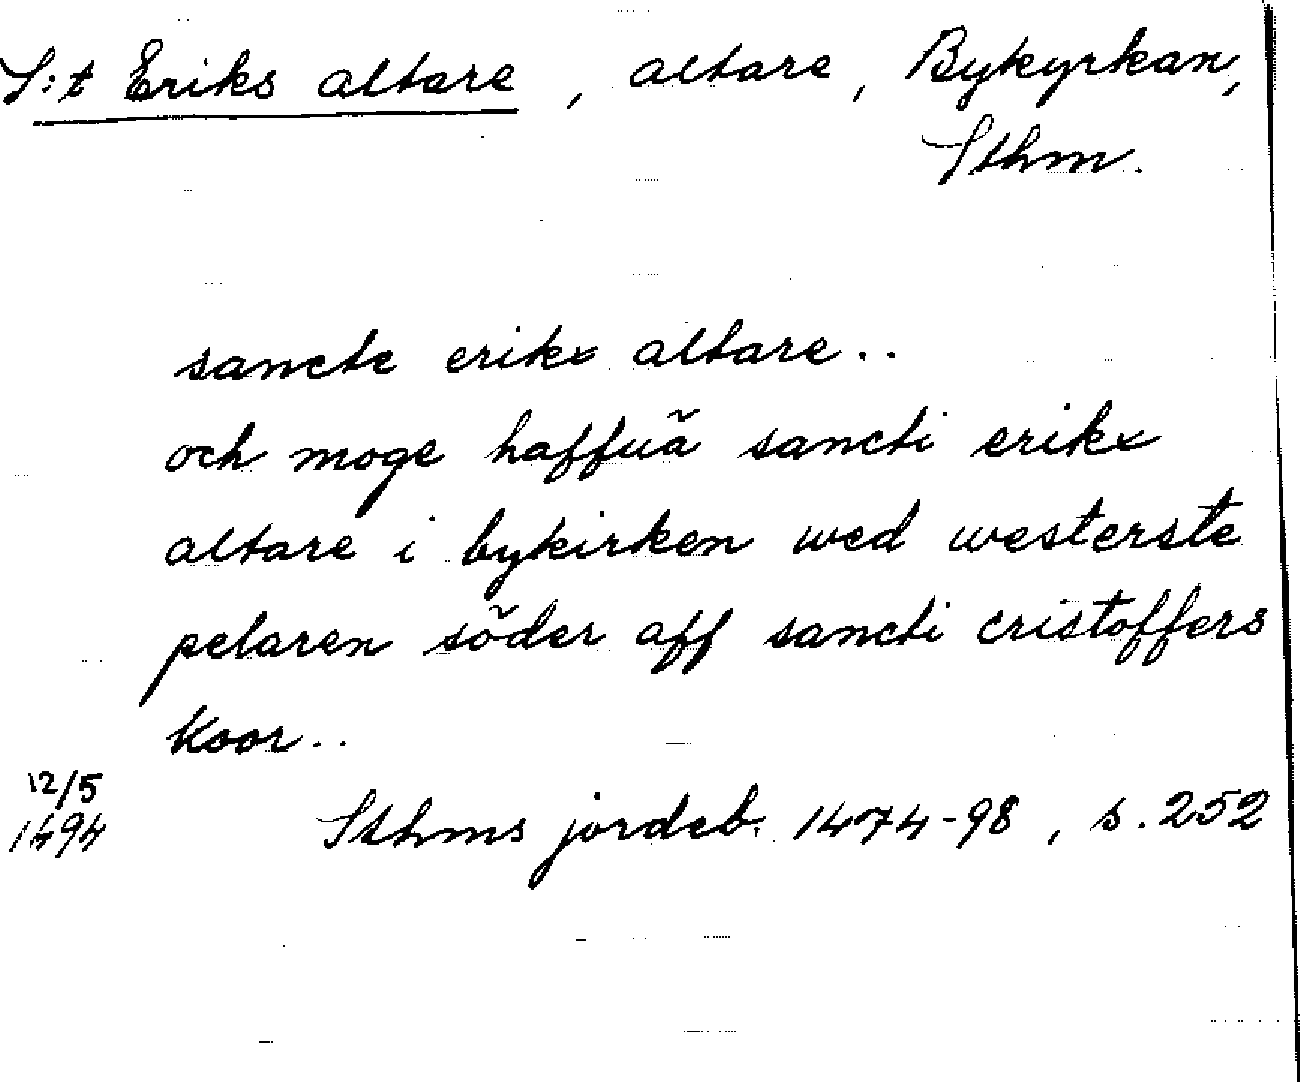 S:t Eriks altare, altare, Bykyrkan,
Sthm.
sancte erikx altare..
och moge haffuã sancti erikx
altare i bykirken wed westerste
pelaren söder aff sancti cristoffers
koor..
12/5
1494
Sthms jordeb. 1474-98, s. 252